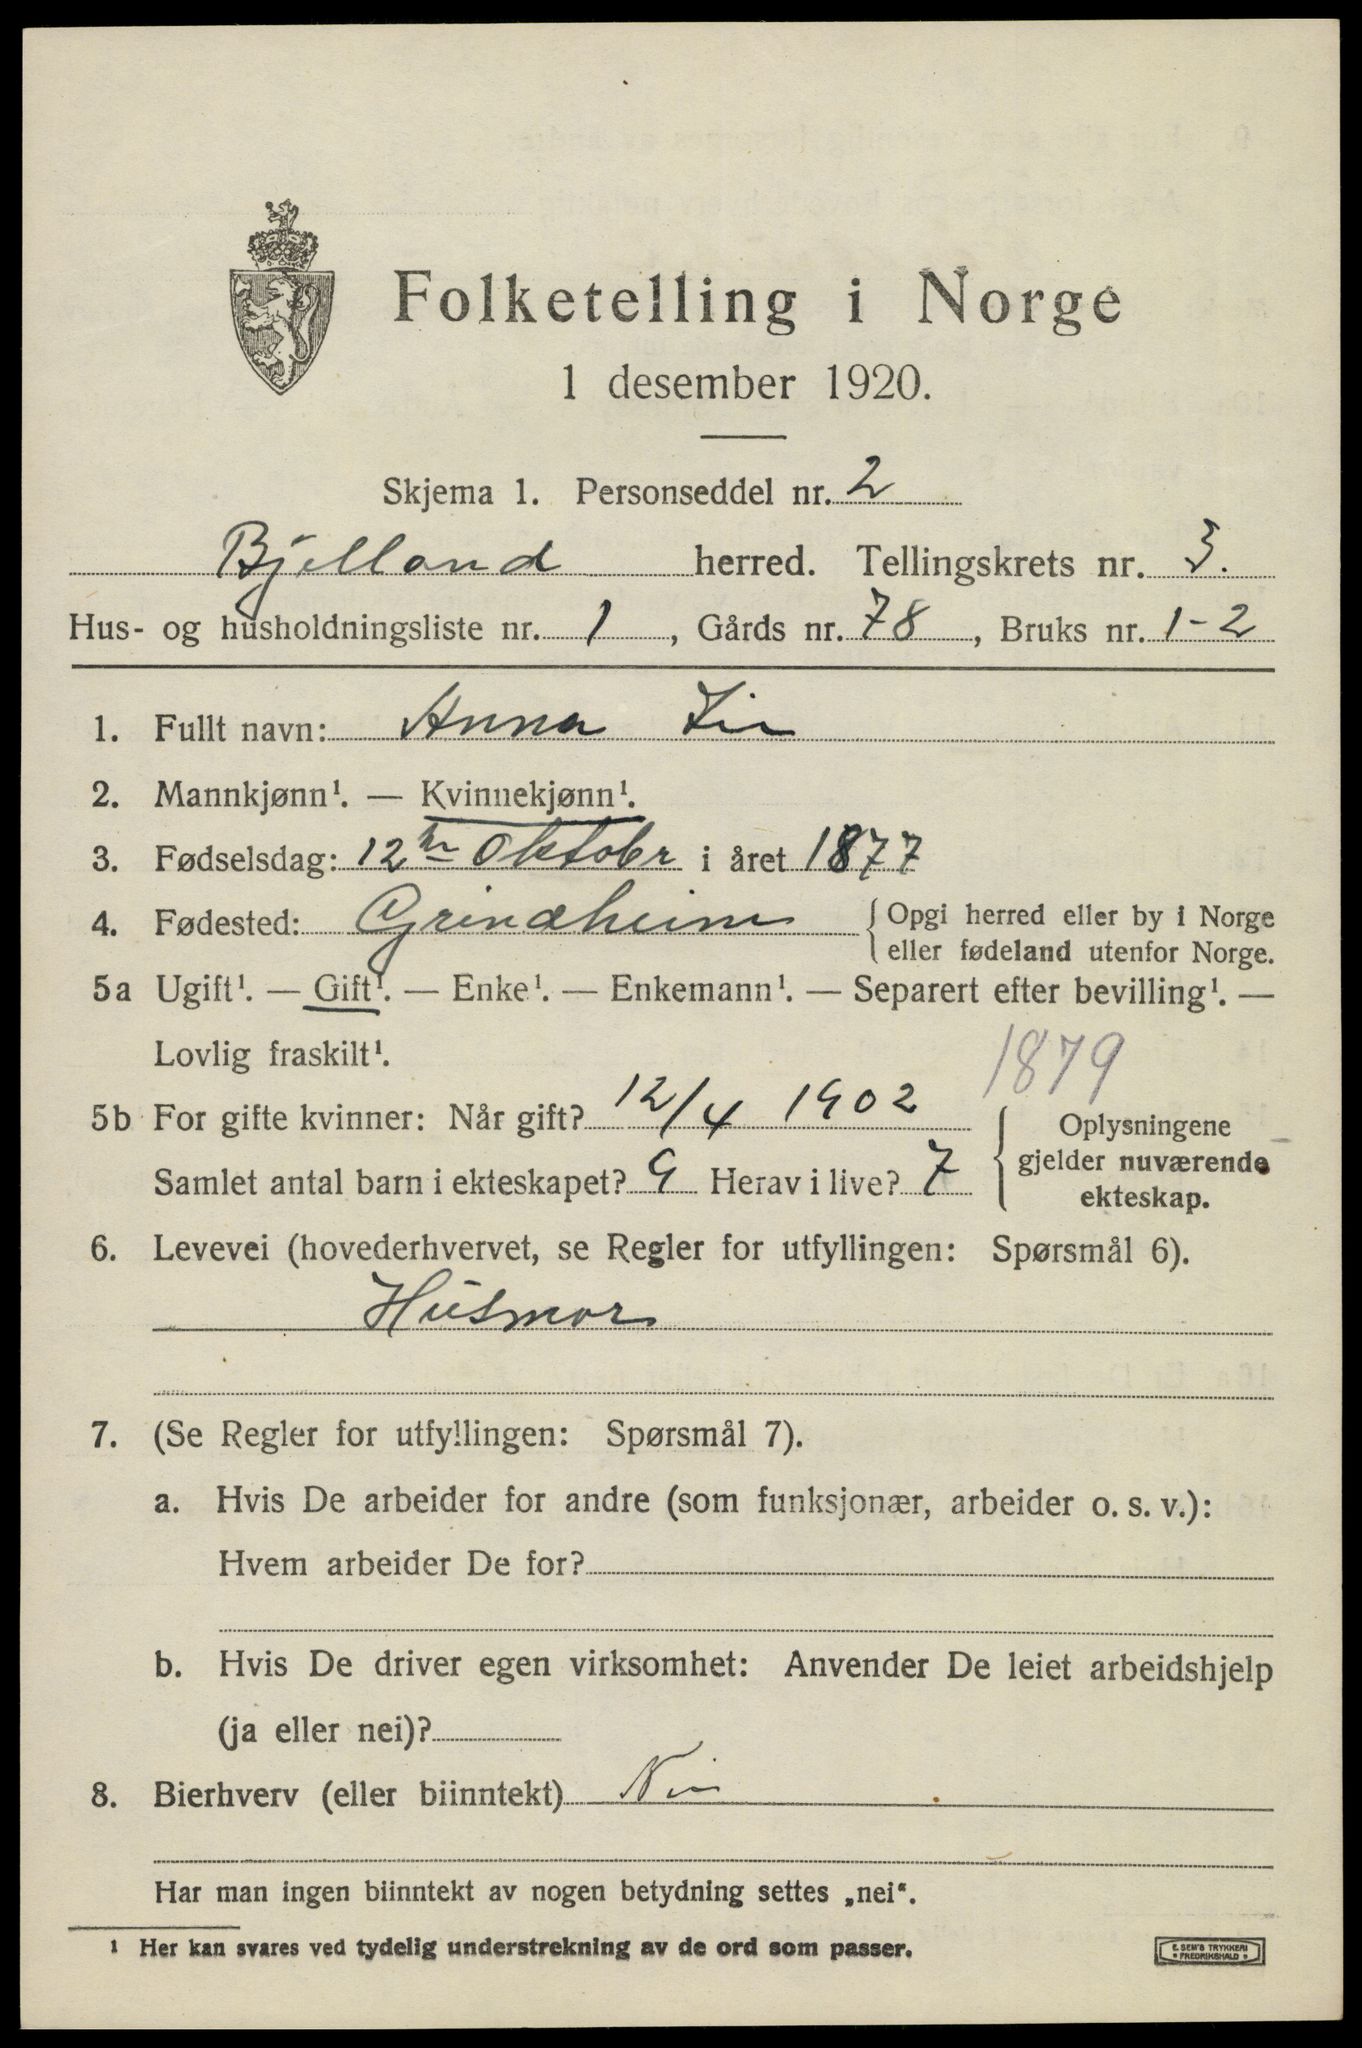 Folketelling i Norge
1 desember 1920.
Skjema 1. Personseddel nr. 2
Bjelland herred. Tellingskrets nr. 3.
Hus- og husholdningsliste nr. 1, Gårds nr. 78, Bruks nr. 1-2
1. Fullt navn: Anna
2. Mannkjønn¹. — Kvinnekjønn¹.
3. Fødselsdag: 12 Oktobr i året 1877
4. Fødested: Grindheim {Opgi herred eller by i Norge
eller fødeland utenfor Norge.
5a Ugift¹. — Gift¹. — Enke¹. — Enkemann¹. — Separert efter bevilling¹. —
Lovlig fraskilt¹.
1879
5b For gifte kvinner: Når gift? 12/4 1902
Samlet antal barn i ekteskapet? 9 Herav i live? 7
{Oplysningene
gjelder nuværende
ekteskap.
6. Levevei (hovederhvervet, se Regler for utfyllingen: Spørsmål 6).
Husmor
7. (Se Regler for utfyllingen: Spørsmål 7).
a. Hvis De arbeider for andre (som funksjonær, arbeider o. s. v.):
Hvem arbeider De for?
b. Hvis De driver egen virksomhet: Anvender De leiet arbeidshjelp
(ja eller nei)?
8. Bierhverv (eller biinntekt) Nei
Har man ingen biinntekt av nogen betydning settes „nei“.
¹ Her kan svares ved tydelig understrekning av de ord som passer.
E. SEM'S TRYKKERI
FREDRIKSHALD